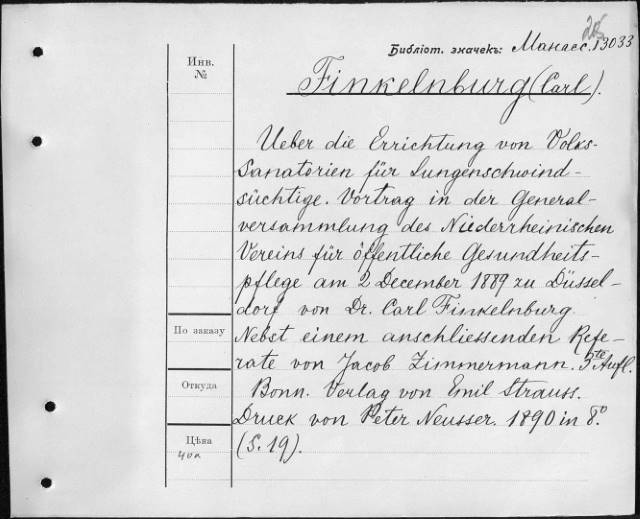 Библіот. значекъ: Манасс. 13033
Инв.
№
Finkelnburg (Carl).
Ueber die Errichtung von Volks-
Sanatorien für Lungenschwind-
süchtige. Vortrag in der General-
versammlung des Niederrheinischen
Vereins für öffentliche Gesundheits-
pflege am 2 December 1889 zu Düssel-
dorf von Dr. Carl Finkelnburg.
По заказу
Nebst einem anschliessenden Refe-
rate von Jacob Zimmermann. 3te Aufl.
Откуда
Bonn. Verlag von Emil Strauss.
Druck von Peter Neusser. 1890 in 8.°
Цѣна
(S. 19).